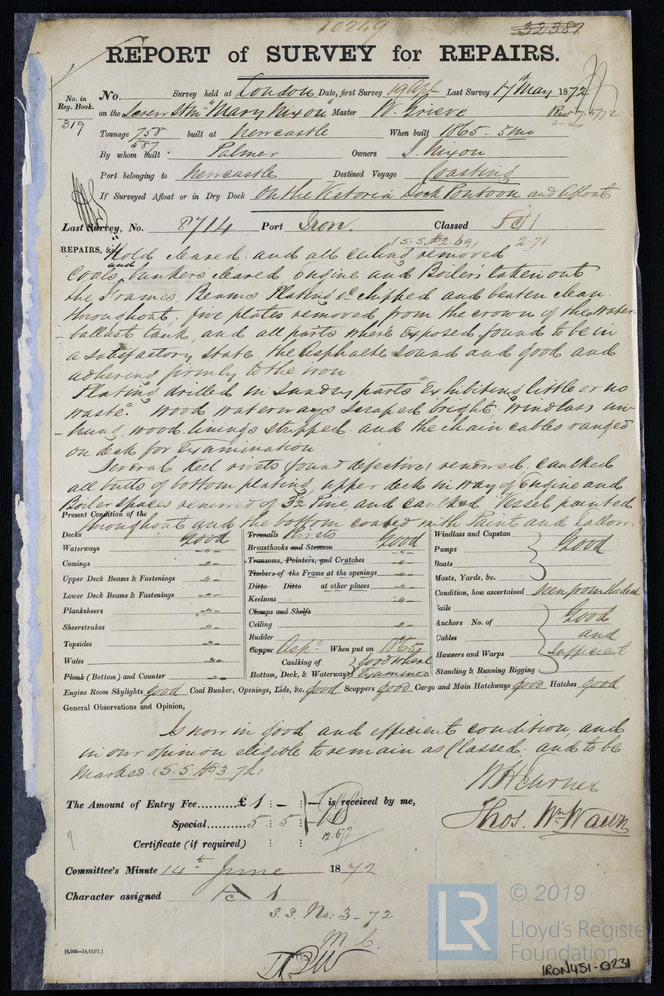 10249
32387
REPORT of SURVEY for REPAIRS.
No. in Reg. Book.
319
No. Survey held at London Date, first Survey 19 Apl Last Survey 17th May 1872
on the Screw Str "Mary Nixon" Master W. Grieve
Tonnage 758 587 built at Newcastle When built 1865 - 5mo
By whom built Palmer Owners J. Nixon
Port belonging to Newcastle Destined Voyage Coasting
If Surveyed Afloat or in Dry Dock On the Victoria Dock Pontoon and Afloat
Last Survey, No. 8714 Port Iron. Classed
(S.S. No 2. 69) 2.71
REPAIRS, &c. Hold cleared and all ceiling removed
and Coals bunkers cleared Engine and Boilers taken out
the Frames, Beams, Plating &c chipped and beaten clean
throughout, five plates removed from the crown of the water
ballast tank, and all parts where exposed found to be in
a satisfactory state the Asphalte sound and good and
adhering firmly to the iron.
Plating drilled in sundry parts "Exhibiting little or no
waste". Wood waterways scraped bright. Windlass un-
-hung, wood linings stripped and the chain cables ranged
on deck for Examination
Several Keel rivets found defective, renewed, caulked
all butts of bottom plating, upper deck in way of Engine and
Boiler spaces renewed of 3½ Pine, and caulked Vessel painted
throughout and the bottom coated with Paint and tallow.
Present Condition of the
Decks Good
Waterways
Comings
Upper Deck Beams & Fastenings
Lower Deck Beams & Fastenings
Planksheers
Sheerstrakes
Topsides
Wales
Plank (Bottom) and Counter
Treenails Rivets Good
Breasthooks and Stemson
Transoms, Pointers, and Crutches
Timbers of the Frame at the openings
Ditto Ditto at other places
Keelsons
Clamps and Shelfs
Ceiling
Rudder
Copper When put on 1865
Caulking of Bottom, Deck, & Waterways Good where Examined
Windlass and Capstan
Pumps Good
Boats
Masts, Yards, &c.
Condition, how ascertained seen from the deck
Sails
Anchors No. of
Cables
Hawsers and Warps
Standing & Running Rigging
Good and Sufficient
Engine Room Skylights good Coal Bunker, Openings, Lids, &c. good Scuppers good Cargo and Main Hatchways good Hatches good
General Observations and Opinion,
Is now in good and efficient condition, and
in our opinion eligible to remain as Classed and to be
Marked (S.S. No 3. 72)
Thos. Wm Wawn
The Amount of Entry Fee.......... £ 1 : - : - is received by me,
Special.......... 5 : 5 :
12.6.72
Certificate (if required)
Committee's Minute 14th June 1872
Character assigned
S.S. No: 3-72
M.C.
© 2019
LR
Lloyd's Register
Foundation
IRON451-0231